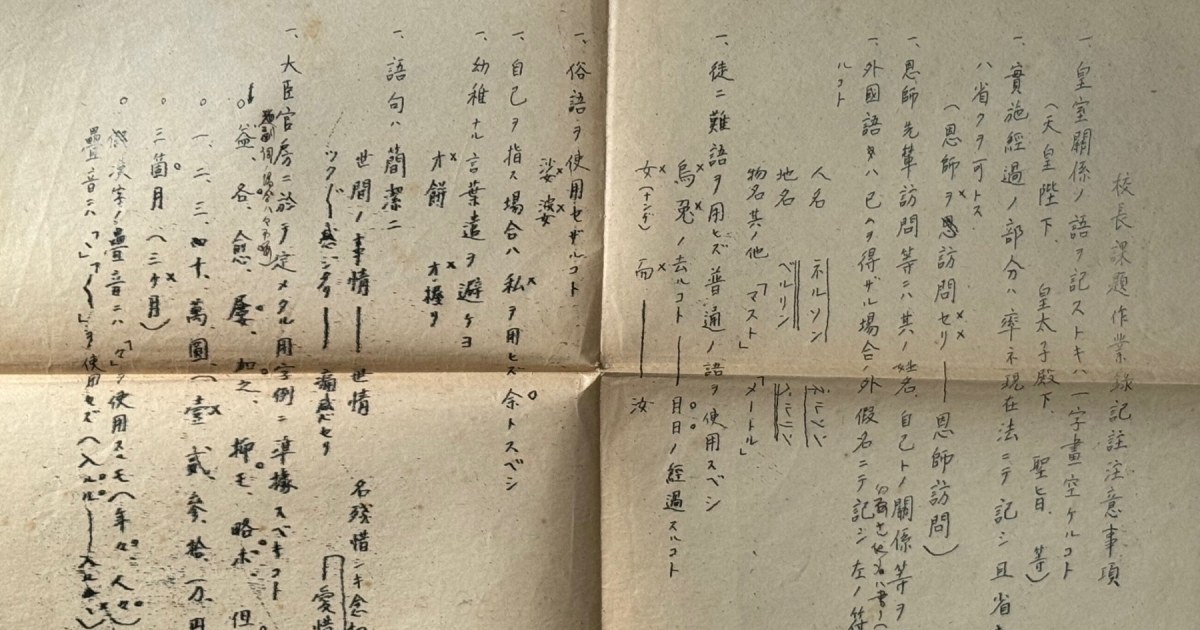 校長課題作業錄記註注意事項
一、皇室關係ノ語ヲ記ストキハ一字畫空ケルコト
(天皇陛下、皇太子殿下、聖旨、等)
一、實施經過ノ部分ハ率ネ現在法ニテ記シ且省
ハ省クヲ可トス
(恩師ヲ訪問セリ――恩師訪問)
一、恩師先輩訪問等ニハ其ノ姓名、自己トノ關係等ヲ
一、外國語ハ已ムヲ得ザル場合ハ外假名ニテ記シ左ノ符
ルコト
人名 ネルソン
地名 ベルリン
物名其ノ他 「マスト」「メートル」
一、徒ニ難語ヲ用ヒズ普通ノ語ヲ使用スベシ
烏兎ノ去ルコト――日日ノ經過スルコト
女(ナンヂ) 而―― 汝
一、俗語ヲ使用セザルコト
一、自己ヲ指ス場合ハ私ヲ用ヒズ余トスベシ
一、幼稚ナル言葉遣ヲ避ケヨ
オ餅 オ握リ
一、語句ハ簡潔ニ
世間ノ事情――世情 名殘惜シキ念
感ジタリ――痛感セリ 愛惜
一、大臣官房ニ於テ定メタル用字例ニ準據スベキコト
○益、各、愈、屢、加之、抑モ、略ボ、但
○一、二、三、十、萬圓、(壹、貳、參、拾、万、円
○三箇月(三ケ月)
○漢字ノ疊音ニハ「々」ヲ使用スルモ(年々、人々)
疊音ニハ「ヽ」「〱」ヲ使用セズ